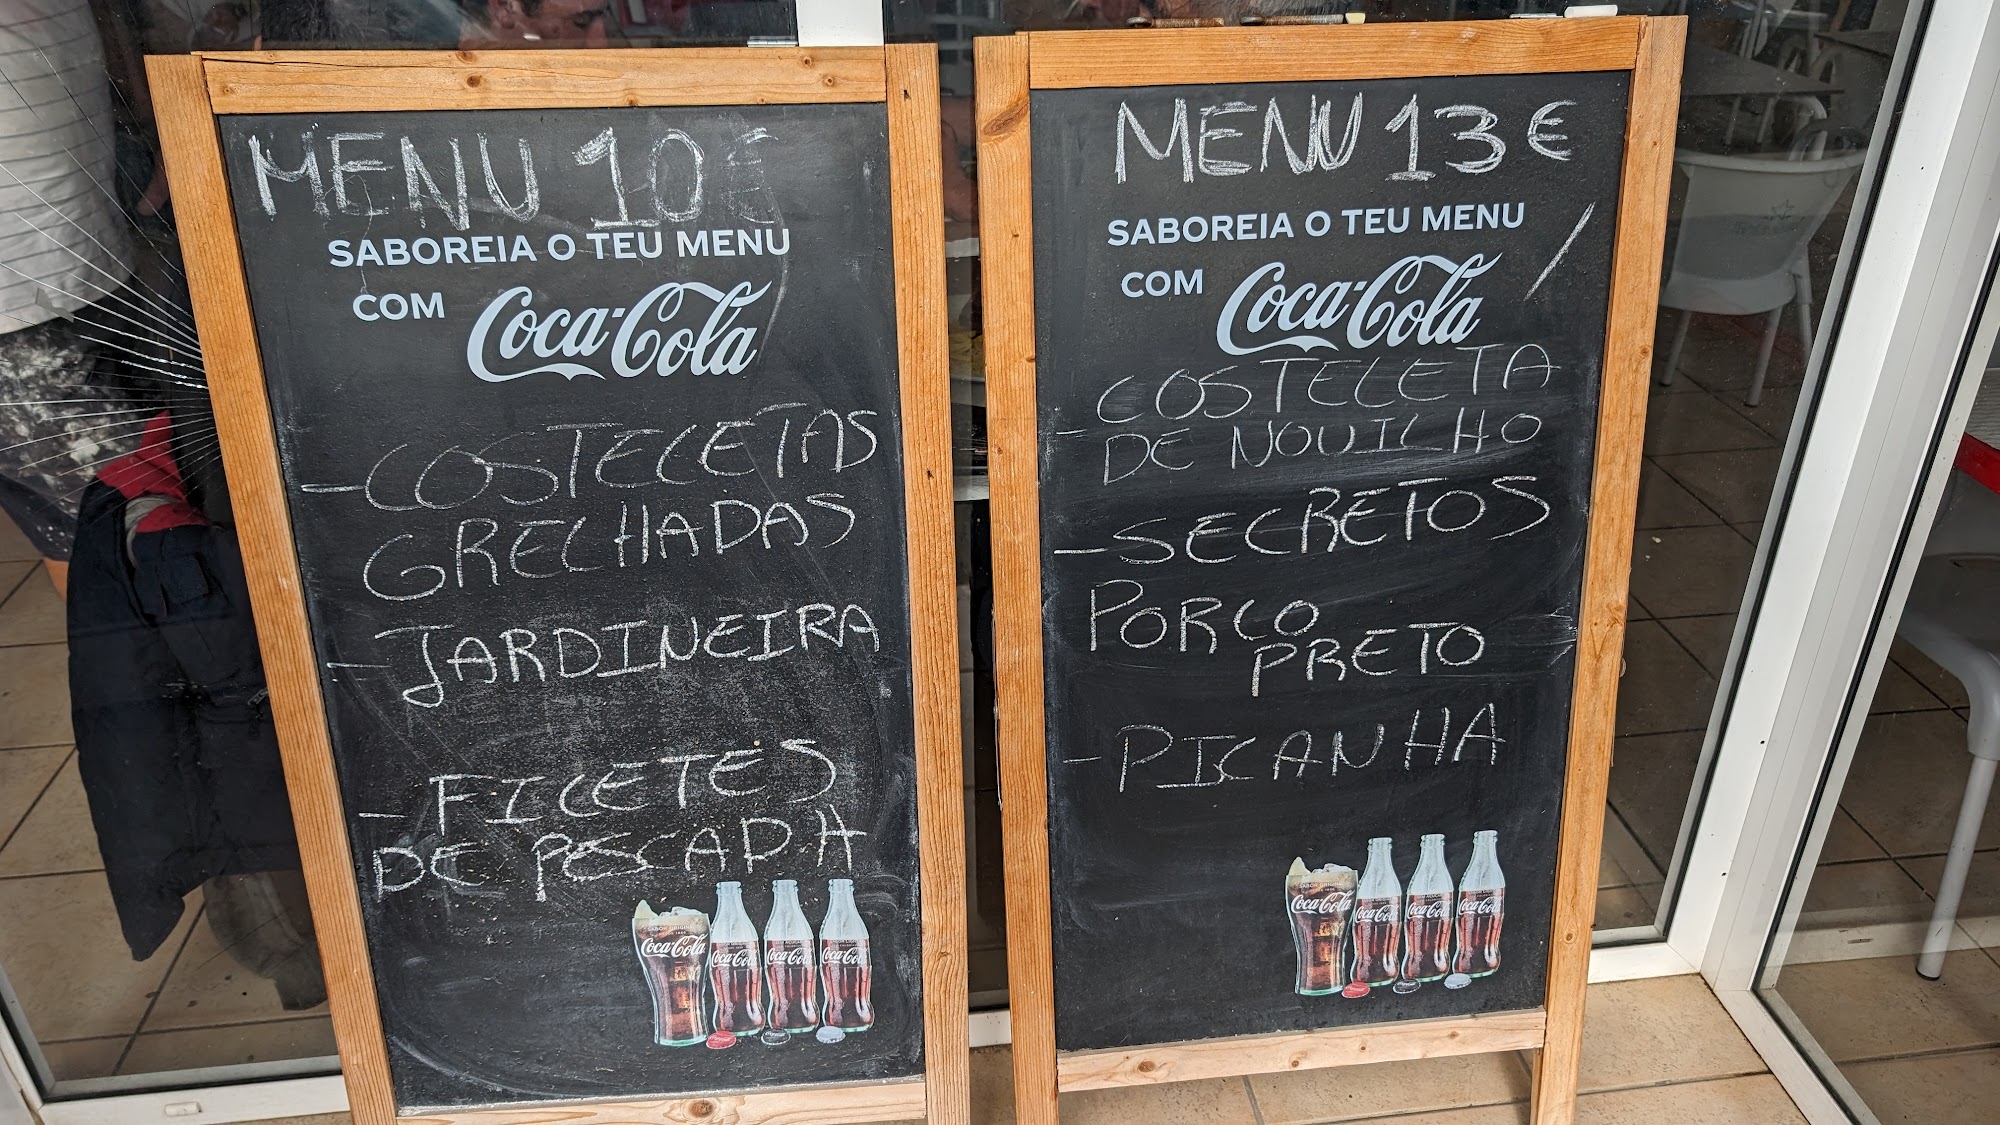 MENU 10€
SABOREIA O TEU MENU
COM Coca-Cola
- COSTELETAS
GRELHADAS
- JARDINEIRA
- FILETES
DE PESCADA
Coca-Cola
Coca-Cola
Coca-Cola
Coca-Cola
MENU 13€
SABOREIA O TEU MENU
COM Coca-Cola
COSTELETA
- DE NOUILHO
- SECRETOS
PORCO
PRETO
- PICANHA
Coca-Cola
Coca-Cola
Coca-Cola
Coca-Cola